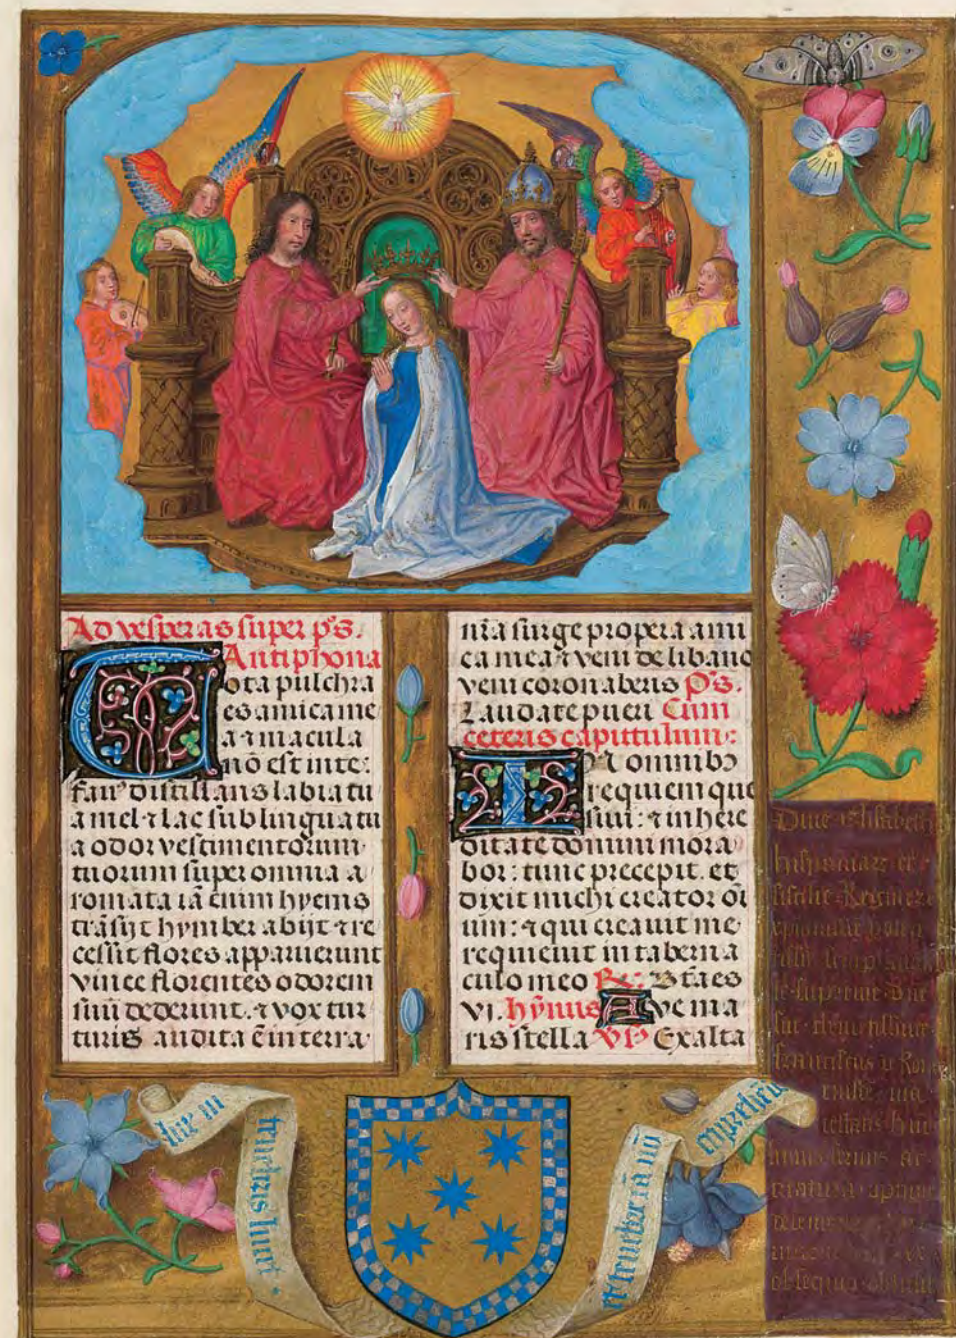 Ad vesperas super p̄s.
Antiphona
Tota pulchra
es amica me
a ⁊ macula
nō est in te:
fau᷒ distillans labia tu
a mel ⁊ lac sub lingua tu
a odor vestimentorum
tuorum super omnia a
romata iā enim hyems
trāsijt hymber abijt ⁊ re
cessit flores apparuerunt
vinee florentes odorem
suū dederunt. ⁊ vox tur
turis audita ē in terra
nr̄a surge propera ami
ca mea ⁊ veni de libano
veni coronaberis P̄s.
Laudate pueri Cum
ceteris capittulum:
In omnibꝫ
requiem que
siui: ⁊ in here
ditate domini mora
bor: tunc precepit. et
dixit michi creator oī
um: ⁊ qui creauit me
requieuit in taberna
culo meo R̄: Btā es
v̄i. hȳnus Ave ma
ris stella V̄s Exalta
lux in
tenebris lucet
et tenebre eā nō
cōprehēderūt
Diue Elisabeth
hispaniaꝝ et
sicilie Regine ⁊c
xp̄ianissime
suprime Dn̄e
sue clementissime
franciscus de Roias
obsequio obtulit